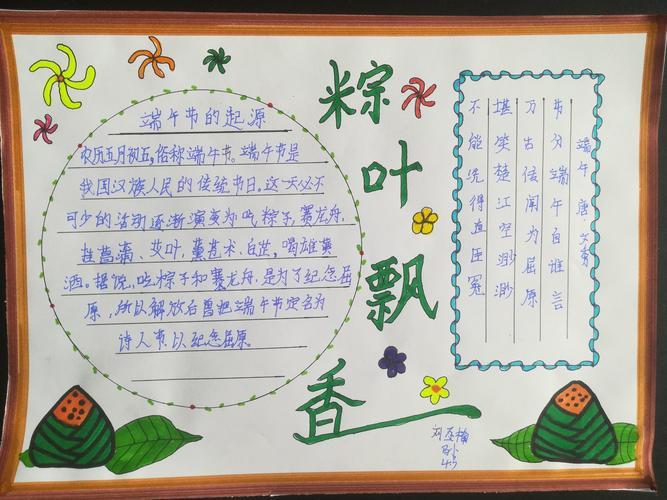 端午节的起源
农历五月初五,俗称端午节。端午节是
我国汉族人民的传统节日。这一天必不
可少的活动逐渐演变为吃粽子,赛龙舟,
挂菖蒲、艾叶,薰苍术、白芷,喝雄黄
酒。据说,吃粽子和赛龙舟,是为了纪念屈
原,所以解放后曾把端午节定名为
诗人节以纪念屈原
粽叶飘香
端午 唐 文秀
节分端午自谁言
万古传闻为屈原
堪笑楚江空渺渺
不能洗得直臣冤